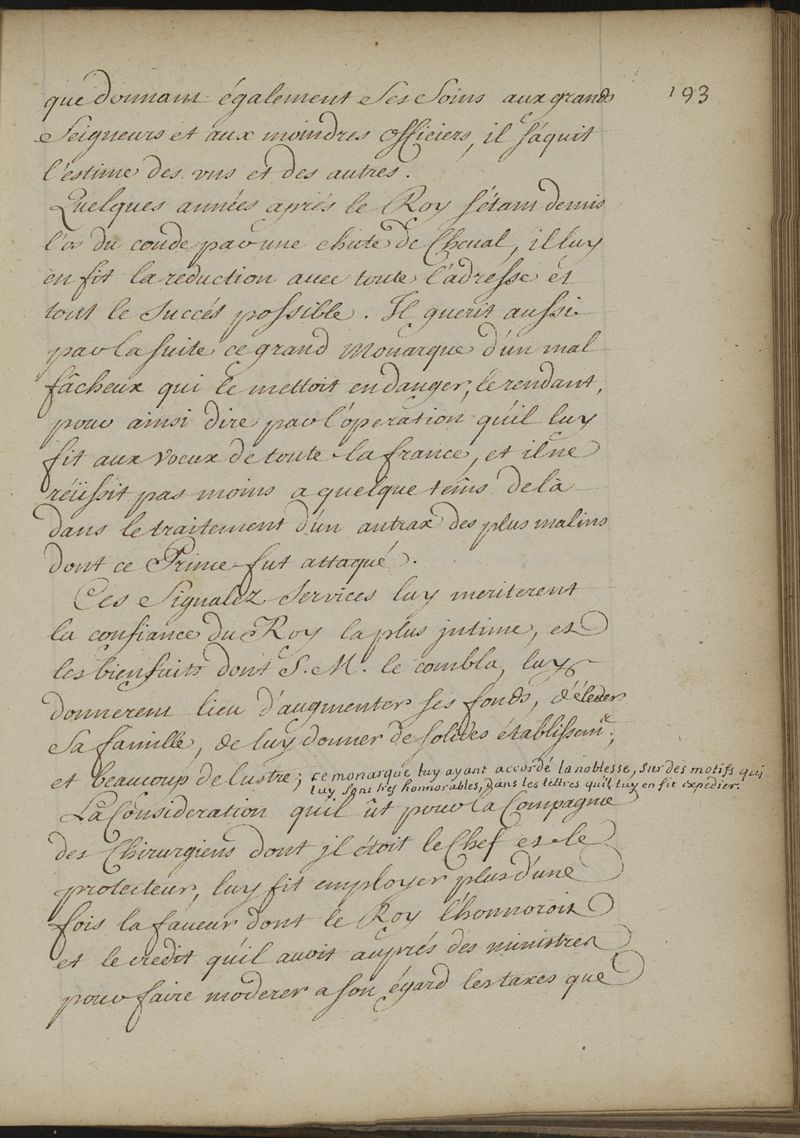 193
que donnant également ses soins aux grands
Seigneurs et aux moindres officiers, il s'aquit
l'estime des uns et des autres.
Quelques années aprés le Roy s'étant demis
l'os du coude par une chute de Cheval, il luy
en fit la reduction avec toute l'adresse et
tout le succés possible. Il guerit aussi
par la suite ce grand Monarque d'un mal
fâcheux qui le mettoit en danger, le rendant,
pour ainsi dire par l'operation qu'il luy
fit aux voeux de toute la france, et il ne
réüissit pas moins a quelque tems de là
dans le traitement d'un antrax des plus malins
dont ce Prince fut attaqué.
Ces Signalez Services luy meriterent
la confiance du Roy la plus jntime, et
les bienfaits dont S. M. le combla, luy
donnerent lieu d'augmenter ses fonds, d'élever
Sa famille, de luy donner de solides établissem.t,
et beaucoup de lustre; ce monarque luy ayant accordé la noblesse, sur des motifs qui
luy sont tres honnorables, dans les lettres qu'il luy en fit expedier.
La Consideration qu'il ût pour la Compagnie
des Chirurgiens dont jl étoit le Chef et le
protecteur, luy fit employer plus d'une
fois la faveur dont le Roy l'honnoroit
et le credit qu'il avoit auprés des ministres
pour faire moderer a son égard les taxes que